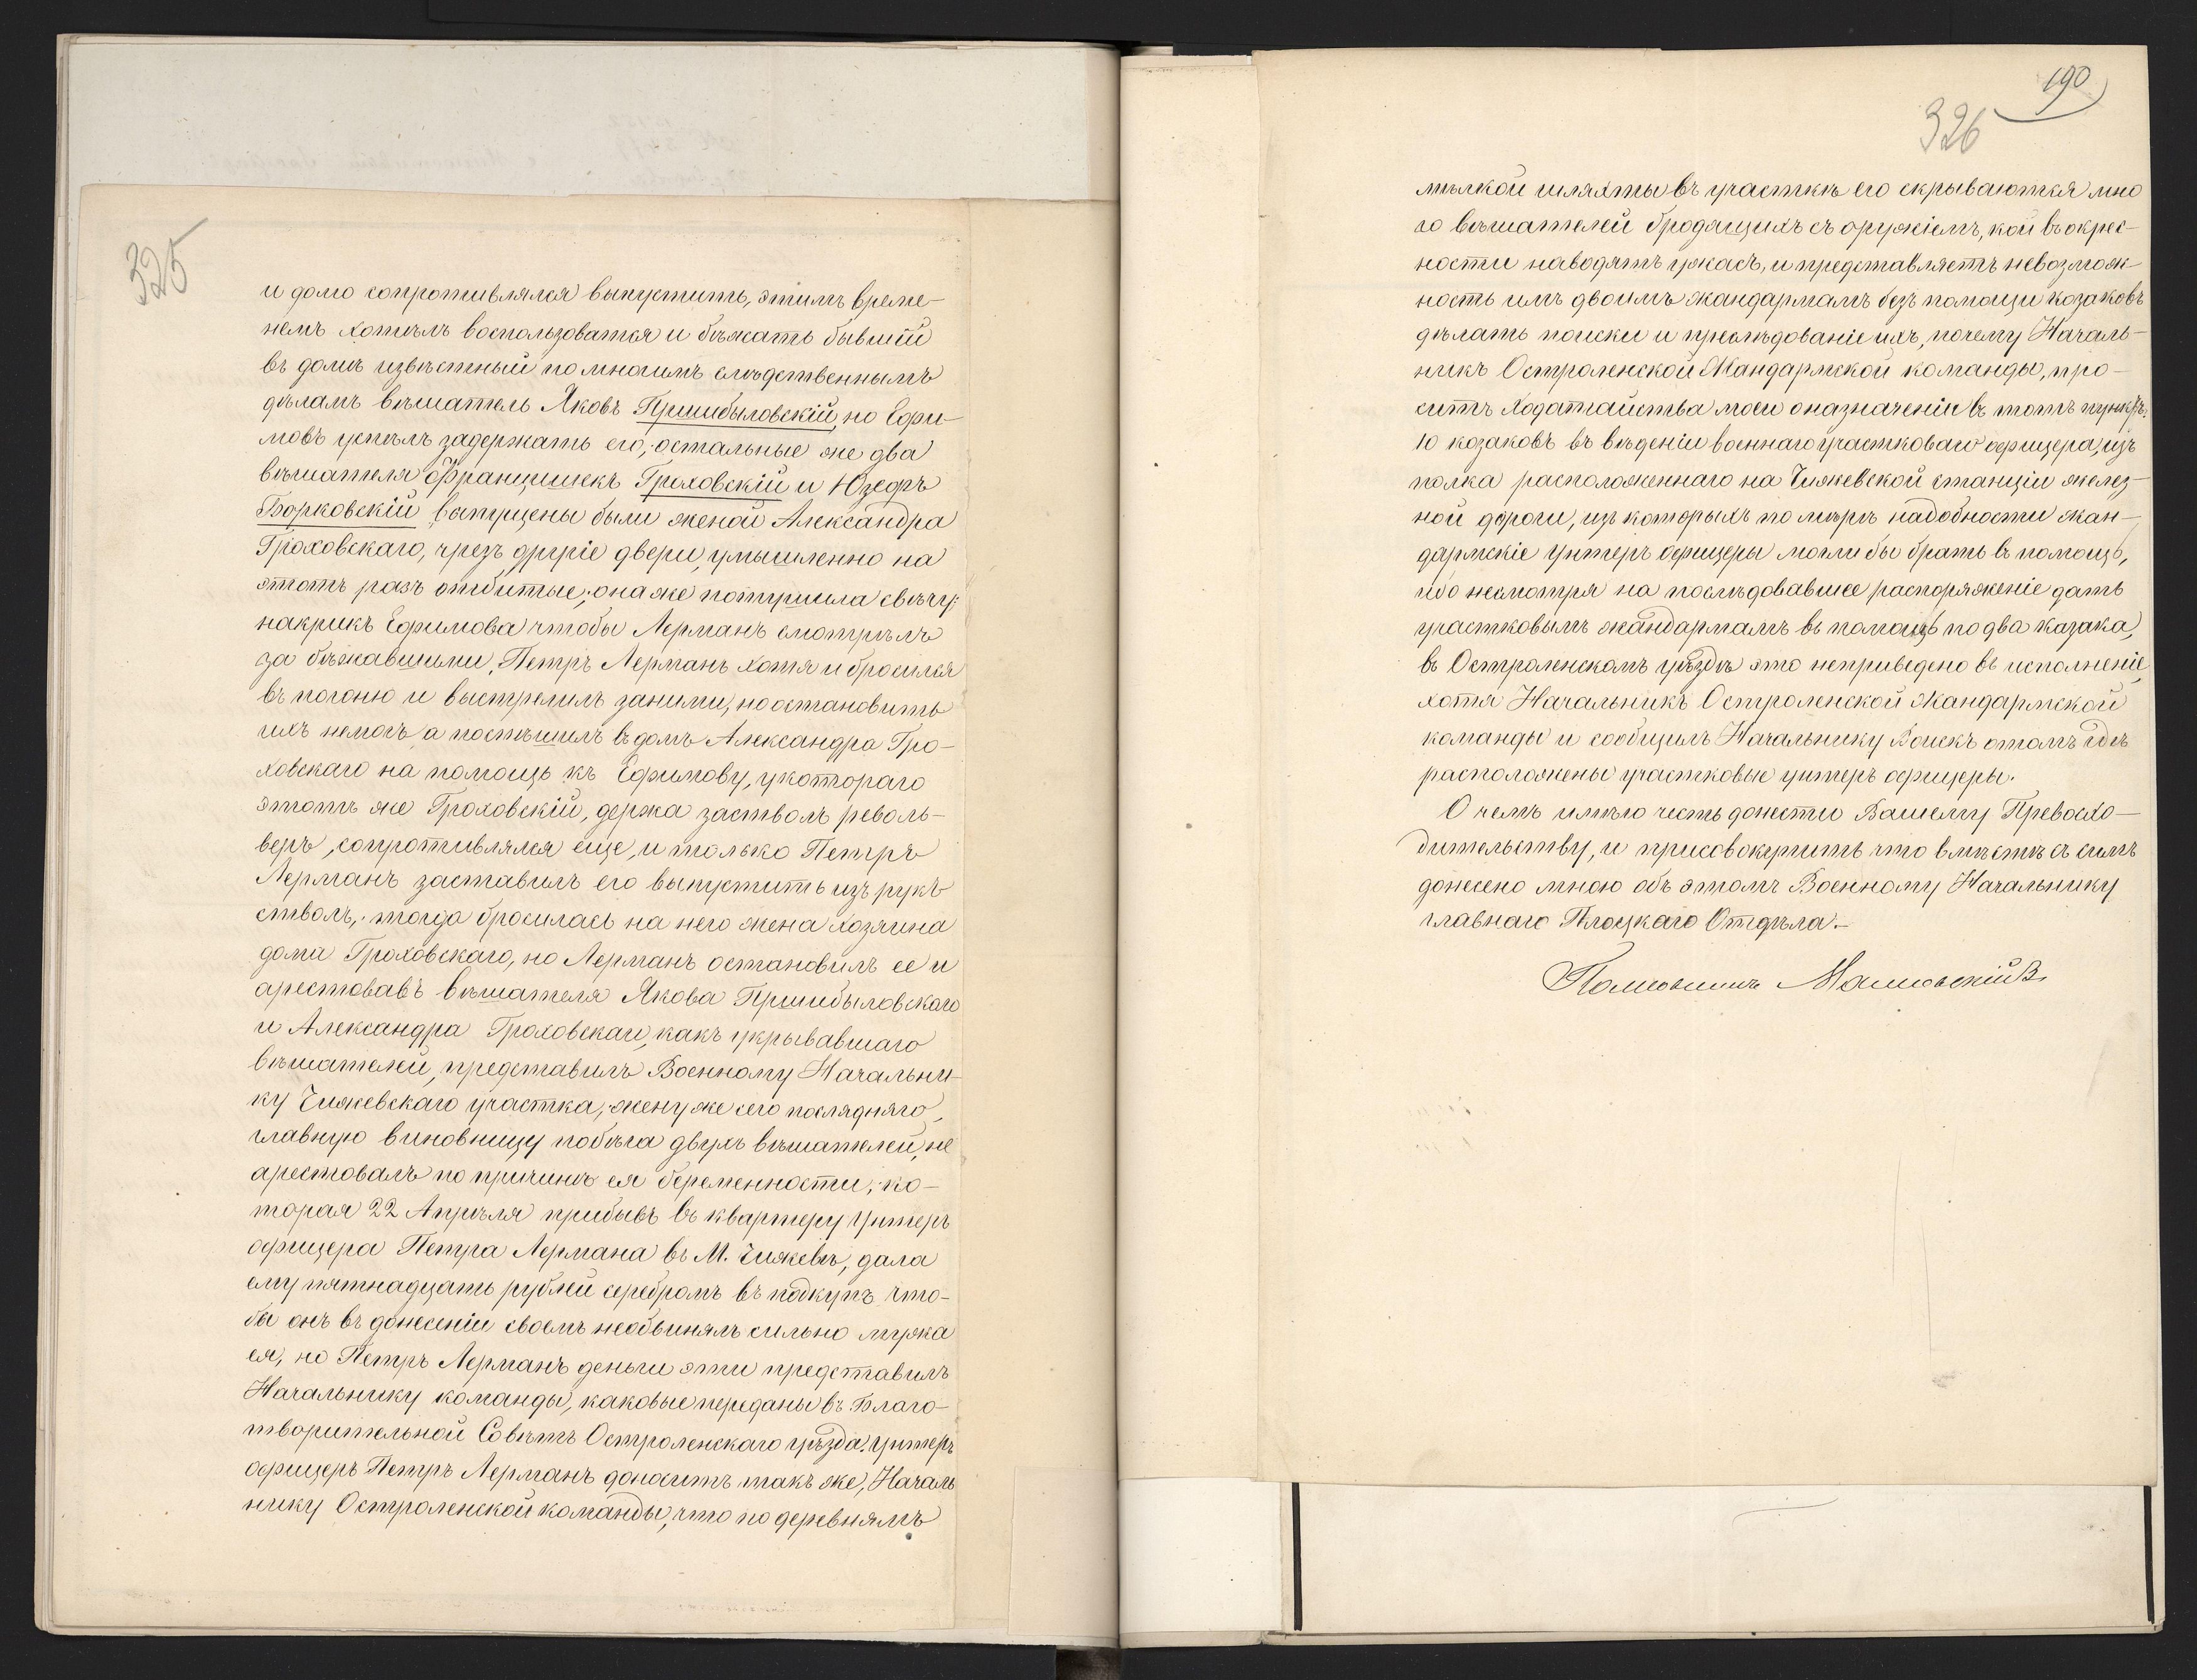 325
и долго сопротивлялся выпустить, этимъ време-
немъ хотѣлъ воспользоватся и бѣжать бывшій
въ домѣ извѣстный по многимъ слѣдственнымъ
дѣламъ вѣшатель Яковъ Пришибыловскій, но Ефи-
мовъ успѣлъ задержать его, остальные же два
вѣшателя Францишекъ Гроховскій и Юзефъ
Борковскій выпущены были женой Александра
Гроховскаго, чрезъ другіе двери, умышленно на
этотъ разъ отбитые; она же потушила свѣчу;
накрикъ Ефимова чтобы Лерманъ смотрѣлъ
за бѣжавшими, Петръ Лерманъ хотя и бросился
въ погоню и выстрелилъ заними, но остановить
ихъ немогъ, а поспѣшилъ въ домъ Александра Гро-
ховскаго на помощь къ Ефимову, укотораго
этотъ же Гроховскій, держа застволъ револь-
веръ, сопротивлялся еще, и только Петръ
Лерманъ заставилъ его выпустить изъ рукъ
стволъ, тогда бросилась на него жена хозяина
дома Гроховскаго, но Лерманъ остановилъ ее и
арестовавъ вѣшателя Якова Пришибыловскаго
и Александра Гроховскаго, какъ укрывавшаго
вѣшателей, представилъ Военному Начальни-
ку Чижевскаго участка, жену же сего послядняго,
главную виновницу побѣга двухъ вѣшателей, не
арестовалъ по причинѣ ея беременности, ко-
торая 22 Апрѣля прибывъ въ квартеру Унтеръ
офицера Петра Лермана въ М. Чижевѣ, дала
ему пятнадцать рублей серебромъ въ подкупъ что-
бы онъ въ донесеніи своемъ необвинялъ сильно мужа
ея, но Петръ Лерманъ деньги эти представилъ
Начальнику команды, каковые переданы въ Благо-
творительной Совѣтъ Остроленскаго уѣзда. Унтеръ
офицеръ Петръ Лерманъ доноситъ такъ же, Началь
нику Остроленской команды, что по деревнямъ
190
326
мѣлкой шляхты въ участкѣ его скрываются мно
го вѣшателей бродящихъ съ оружіемъ, кои въ окрес-
ности наводятъ ужасъ, и представляетъ невозмож-
ность имъ двоимъ жандармамъ безъ помощи козаковъ
дѣлать поиски и преслѣдованіе ихъ, почему Началь-
никъ Остроленской Жандармской команды, про-
ситъ ходатайства моего оназначеніи въ тотъ пунктъ
10 козаковъ въ вѣденіи военнаго участковаго офицера, изъ
полка расположеннаго на Чижевской станціи желез-
ной дороги, изъ которыхъ по мѣрѣ надобности жан-
дармскіе унтеръ офицеры могли бы брать въ помощь,
ибо несмотря на послѣдовавшее распоряженіе дать
участковымъ жандармамъ въ помощь по два казака,
въ Остроленскомъ уѣздѣ это неприведено въ исполненіе,
хотя Начальникъ Остроленской Жандармской
команды и сообщилъ Начальнику Войскъ отомъ гдѣ
расположены участковые унтеръ офицеры.
О чемъ имѣю честь донести Вашему Превосхо-
дительству, и присовокупить что вмѣстѣ съ симъ
донесено мною объ этомъ Военному Начальнику
главнаго Плоцкаго Отдѣла.-
Полковникъ